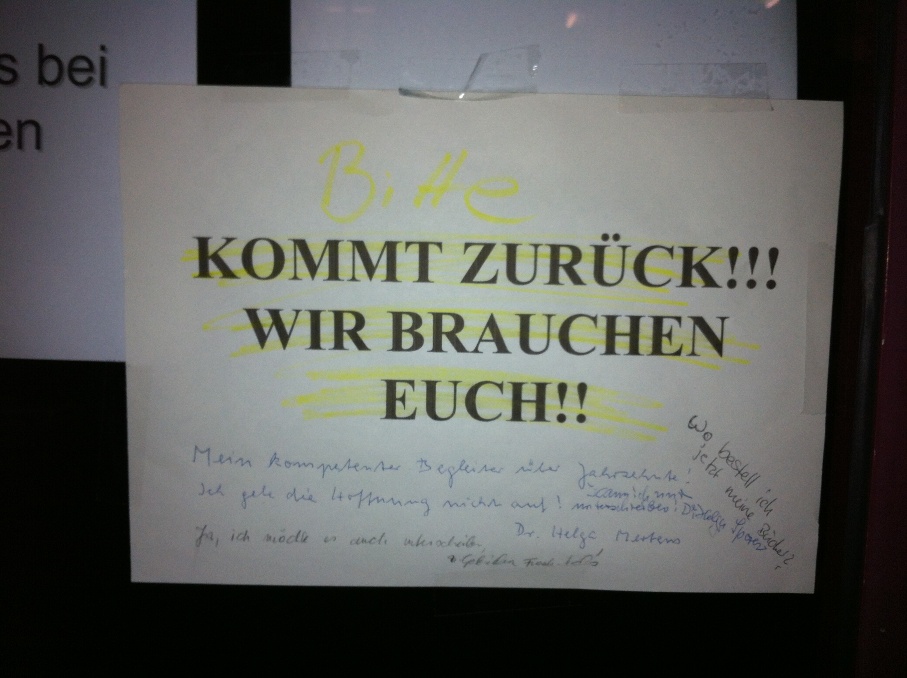 s bei
en
Bitte
KOMMT ZURÜCK!!!
WIR BRAUCHEN
EUCH!!
Mein kompetenter Begleiter über Jahrzehnte!
Ich gebe die Hoffnung nicht auf!
Dr. Helga Mertens
kann ich nur
unterschreiben!
Ja, ich möchte es auch unterschreiben,
Wo bestell ich
jetzt meine Bücher?